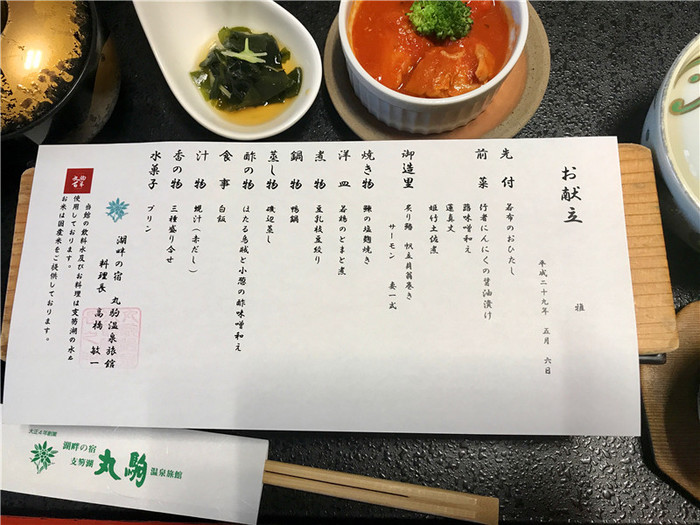 お献立
雅
平成二十九年 五月 六日
先付 若布のおひたし
前菜 行者にんにくの醤油漬け
蕗味噌和え
蓮真丈
姫竹土佐煮
御造里 炙り鮪 帆立貝翁巻き
サーモン 妻一式
焼き物 鰊の塩麹焼き
洋皿 若鶏のとまと煮
煮物 豆乳枝豆絞り
鍋物 鴨鍋
蒸し物 磯辺蒸し
酢の物 ほたる烏賊と小葱の酢味噌和え
食事 白飯
汁物 蜆汁(赤だし)
香の物 三種盛り合せ
水菓子 プリン
湖畔の宿 丸駒温泉旅館
料理長 高橋 敏一
当館の飲料水及びお料理は支笏湖の水を
使用しております。
お米は国産米をご提供しております。
大正4年創業
湖畔の宿
支笏湖
丸駒
温泉旅館